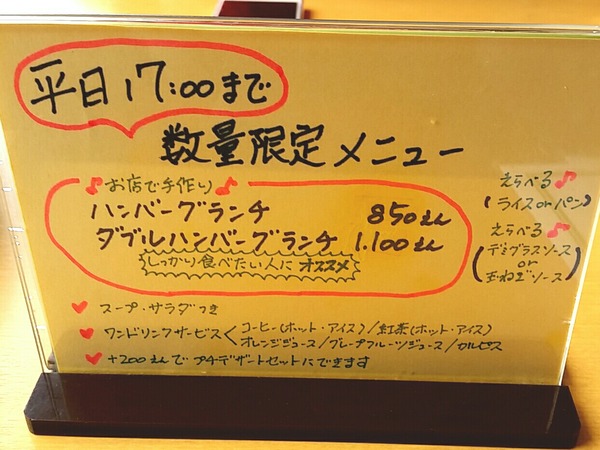 平日17:00まで
数量限定メニュー
お店で手作り
ハンバーグランチ 850えん
ダブルハンバーグランチ 1.100えん
しっかり食べたい人にオススメ
えらべる
(ライスorパン)
えらべる
(デミグラスソース
or
玉ねぎソース)
スープ・サラダつき
ワンドリンクサービス<コーヒー(ホット・アイス)/紅茶(ホット・アイス)
オレンジジュース/グレープフルーツジュース/カルピス
+200えんでプチデザートセットにできます